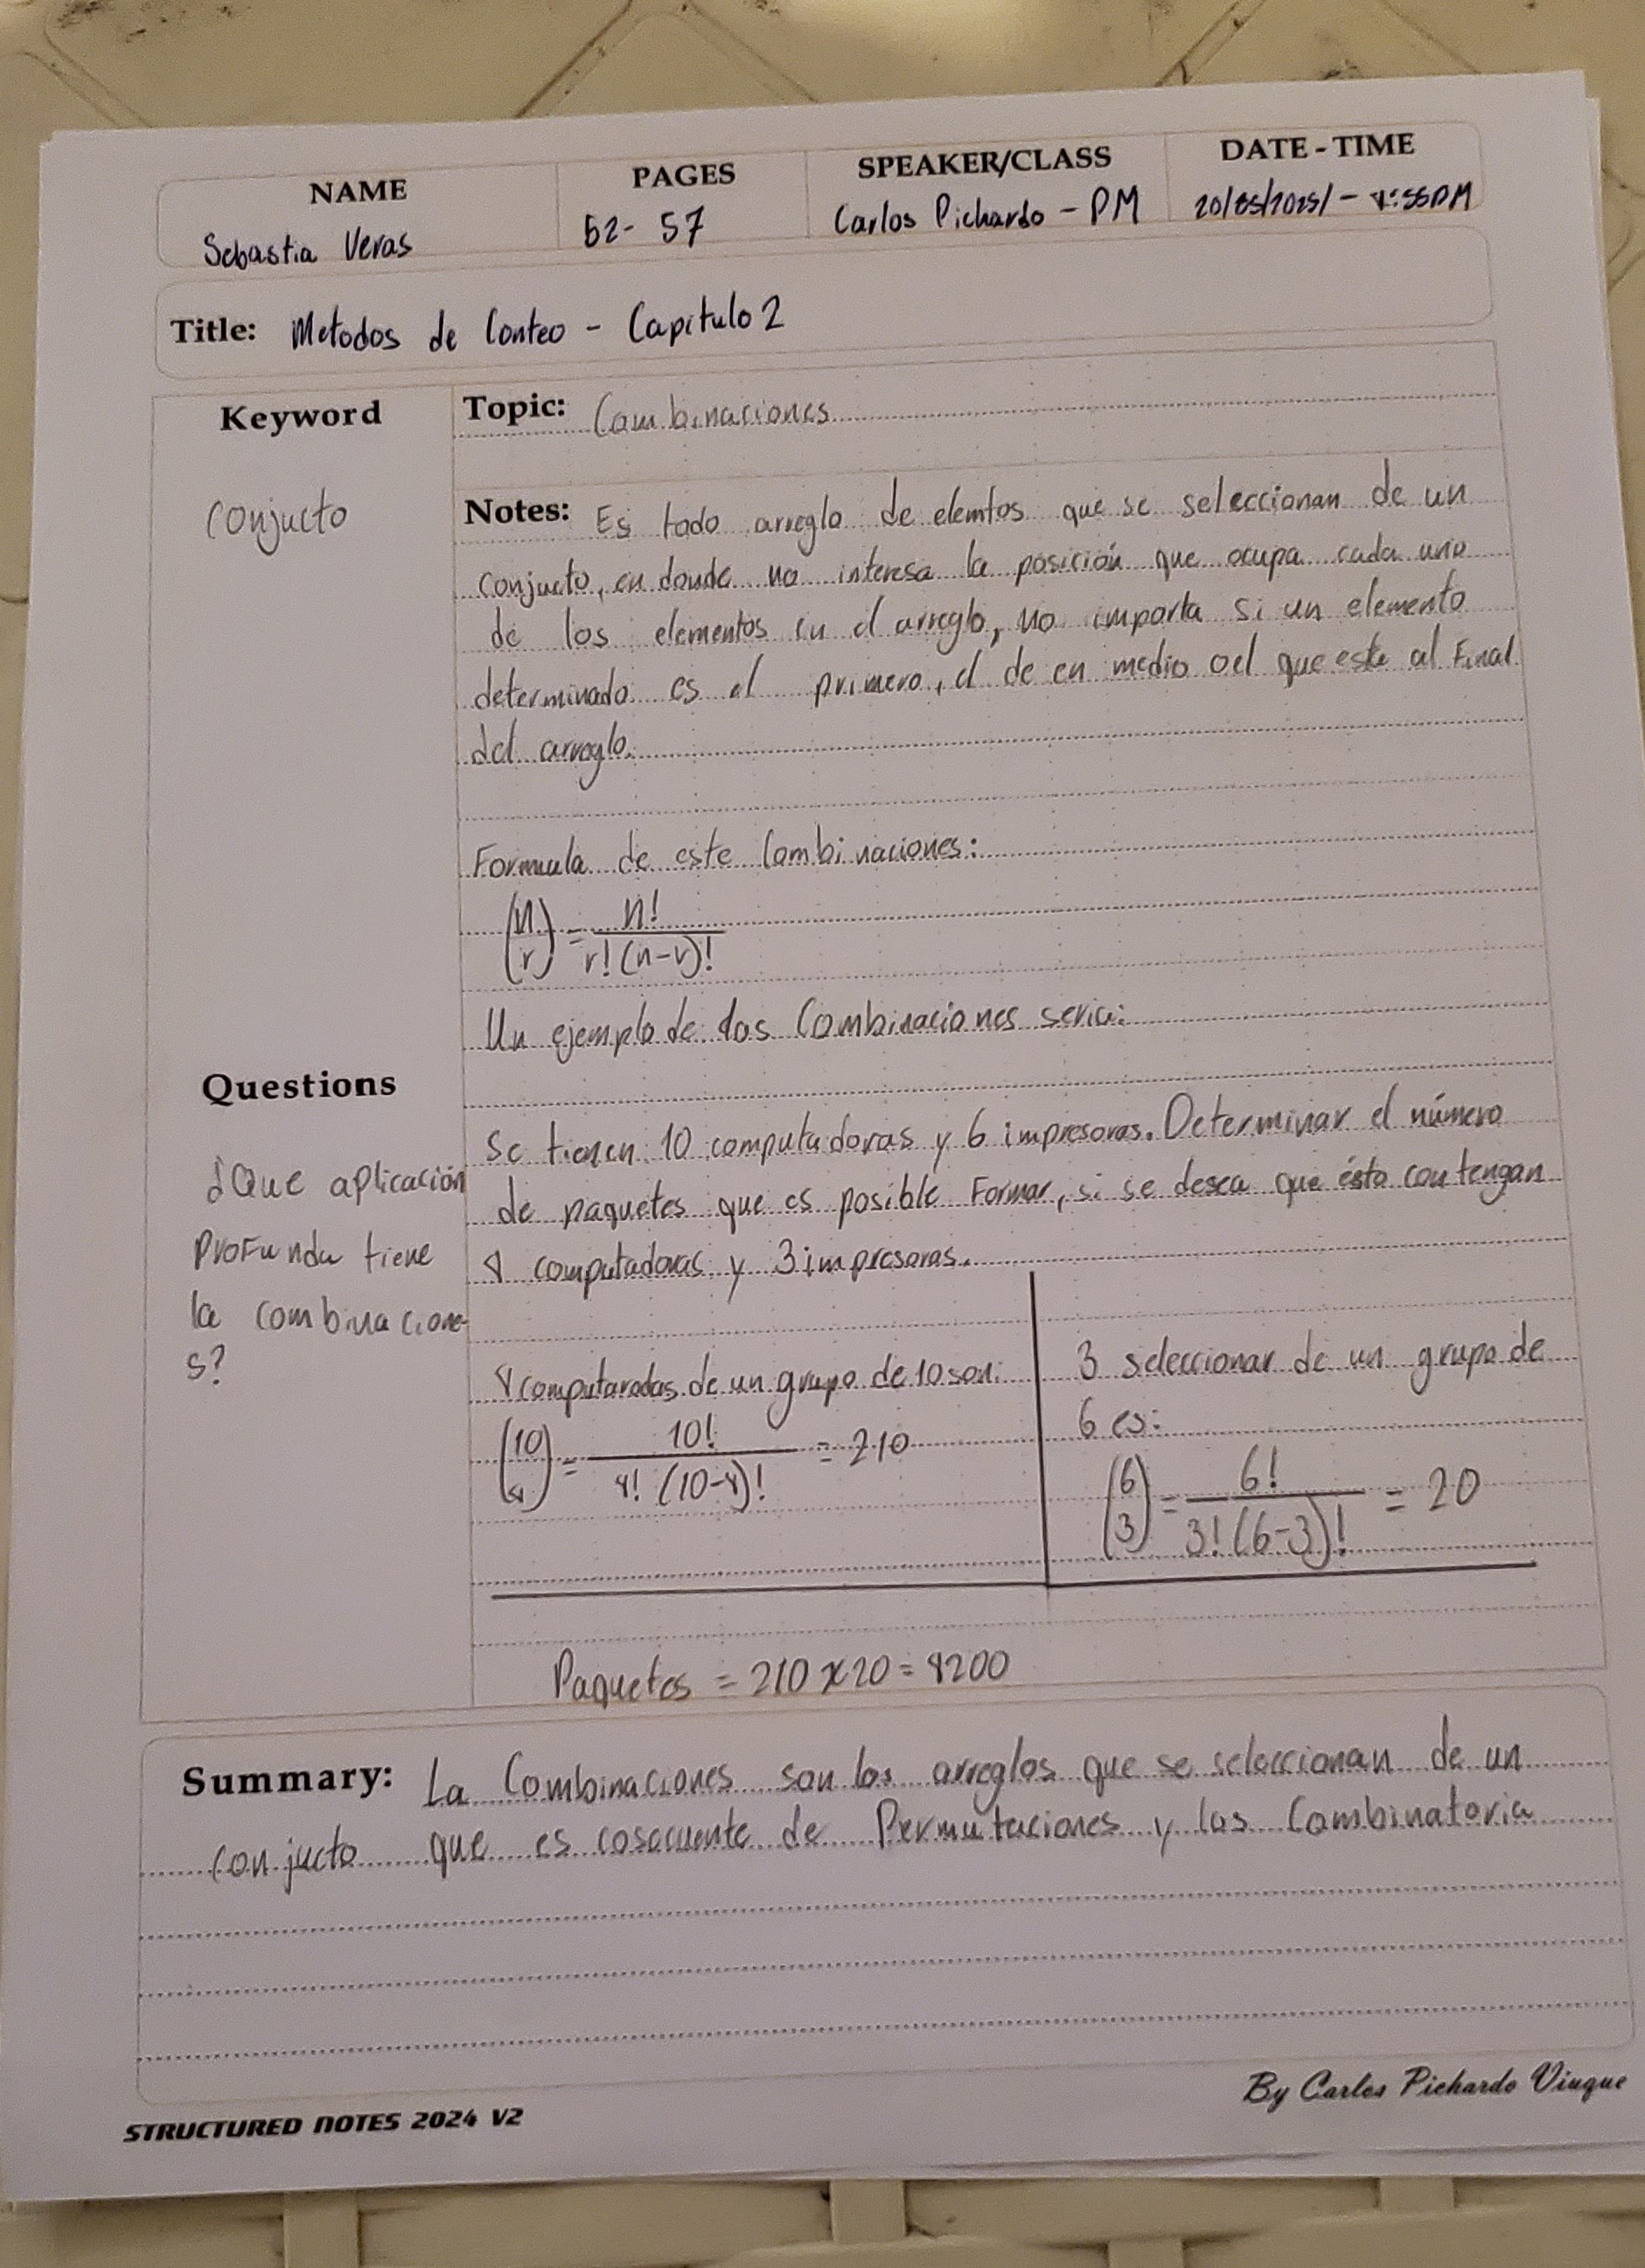 NAME
PAGES
SPEAKER/CLASS
DATE - TIME
Sebastia Veras
52- 57
Carlos Pichardo - PM
Title: Metodos de Conteo - Capitulo 2
Keyword
conjucto
Topic: Combinaciones
Notes: Es todo arreglo de elemtos que se seleccionan de un
conjucto, en donde no interesa la posición que ocupa cada uno
de los elementos en el arreglo, no importa si un elemento
determinado es el primero, el de en medio o el que este al Final
del arreglo.
Formula de este Combinaciones:
(n r) = n! / r! (n-r)!
Un ejemplo de las Combinaciones seria:
Questions
¿Que aplicación
Profunda tiene
la combinacione-
s?
Se tienen 10 computadoras y 6 impresoras. Determinar el número
de paquetes que es posible Formar, si se desea que ésto contengan
4 computadoras y 3 impresoras.
4 computarodas de un grupo de 10 son:
(10 4) = 10! / 4! (10-4)! = 210
3 seleccionar de un grupo de
6 es:
(6 3) = 6! / 3! (6-3)! = 20
Paquetes = 210 x 20 = 4200
Summary: La Combinaciones son los arreglos que se seleccionan de un
conjucto que es cosecuente de Permutaciones y las Combinatoria
STRUCTURED NOTES 2024 V2
By Carlos Pichardo Viuque